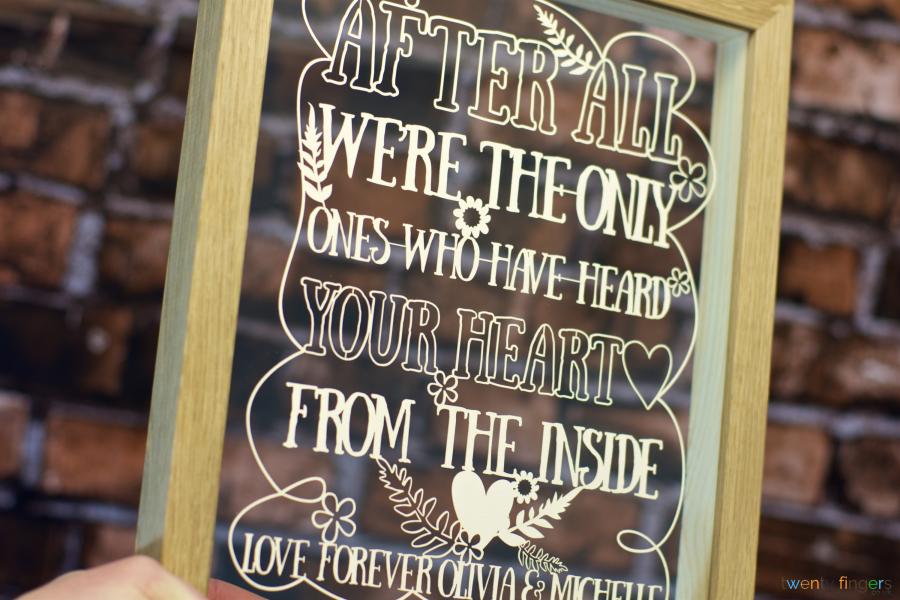 AFTER ALL
WE'RE THE ONLY
ONES WHO HAVE HEARD
YOUR HEART
FROM THE INSIDE
LOVE FOREVER OLIVIA & MICHELLE
twenty fingers